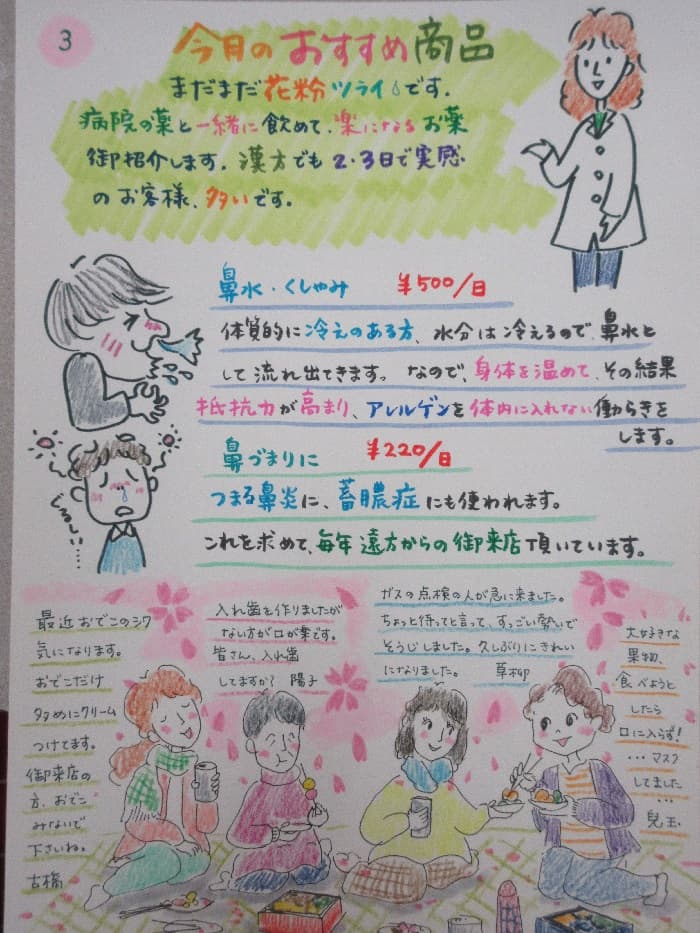 3
今月のおすすめ商品
まだまだ花粉ツライです.
病院の薬と一緒に飲めて、楽になるお薬
御紹介します。漢方でも2・3日で実感
のお客様、多いです。
鼻水・くしゃみ ¥500/日
体質的に冷えのある方、水分は冷えるので、鼻水と
して流れ出てきます。なので、身体を温めて、その結果
抵抗力が高まり、アレルゲンを体内に入れない働らきを
します。
鼻づまりに ¥220/日
つまる鼻炎に、蓄膿症にも使われます。
これを求めて、毎年遠方からの御来店頂いています。
くるしい……
最近おでこのシワ
気になります。
おでこだけ
多めにクリーム
つけてます。
御来店の
方、おでこ
みないで
下さいね。
古橋
入れ歯を作りましたが
ない方が口が楽です。
皆さん、入れ歯
してますか? 陽子
ガスの点検の人が急に来ました。
ちょっと待ってと言って、すっごい勢いで
そうじしました。久しぶりにきれい
になりました。 草柳
大好きな
果物、
食べようと
したら
口に入らず!
…マスク
してました
…
児玉